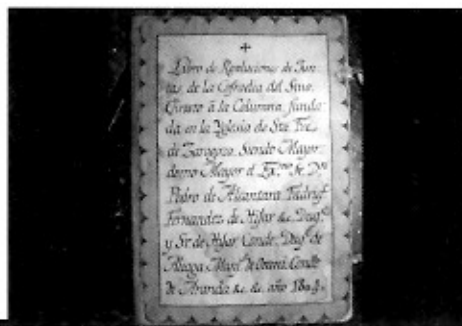 Libro de Resoluciones de Jun
tas, de la Cofradia del Smo.
Christo á la Columna, funda
da en la Yglesia de Sta. Fee,
de Zaragoza. Siendo Mayor
domo Mayor el Exmo. Sr. Dn.
Pedro de Alcantara Fadriq.
Fernandez de Hijar &c. Duq.
y Sr. de Hijar Conde, Duq. de
Aliaga de Conde
de Aranda &c. &c. año